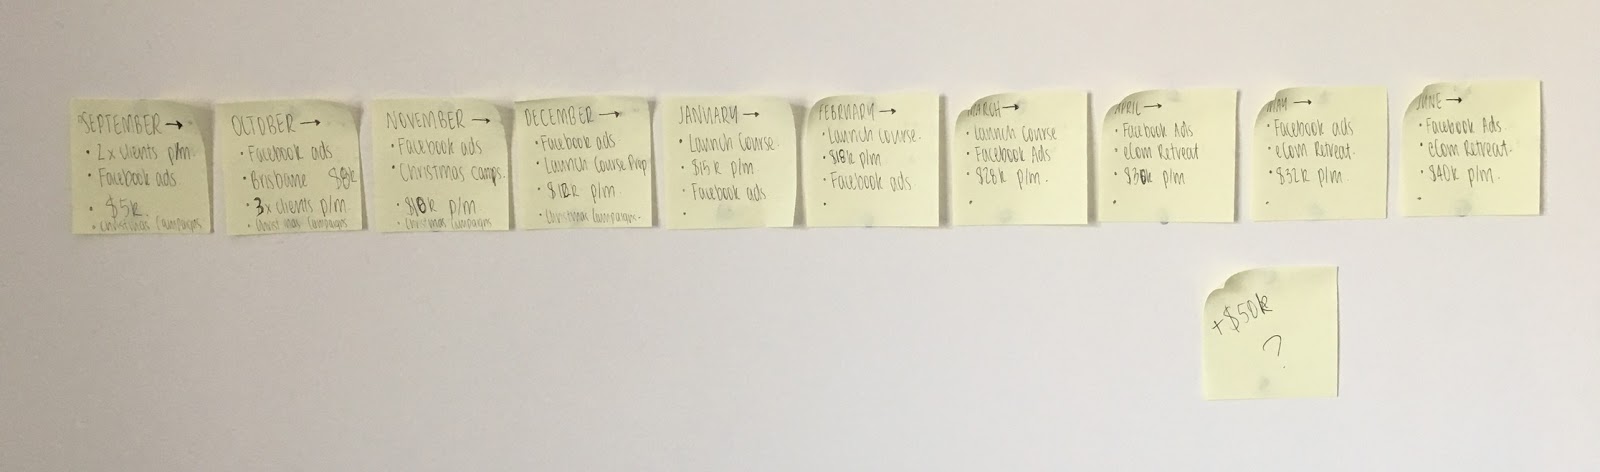 SEPTEMBER →
• 2x clients p/m.
• Facebook ads
• $5k.
• Christmas Campaigns
OCTOBER →
• Facebook ads
• Brisbane $8k
• 3x clients p/m.
• Christmas Campaigns
NOVEMBER →
• Facebook ads
• Christmas camps.
• $10k p/m
• Christmas Campaigns
DECEMBER →
• Facebook ads
• Launch Course Prep
• $12k p/m.
• Christmas Campaigns.
JANUARY →
• Launch Course.
• $15k p/m
• Facebook ads
•
FEBRUARY →
• Launch course.
• $18k p/m
• Facebook ads
•
MARCH →
• Launch Course
• Facebook Ads
• $28k p/m.
•
APRIL →
• Facebook Ads
• eCom Retreat
• $30k p/m
•
MAY →
• Facebook ads
• eCom Retreat.
• $32k p/m.
•
JUNE →
• Facebook Ads.
• eCom Retreat.
• $40k p/m.
•
+$50k
?